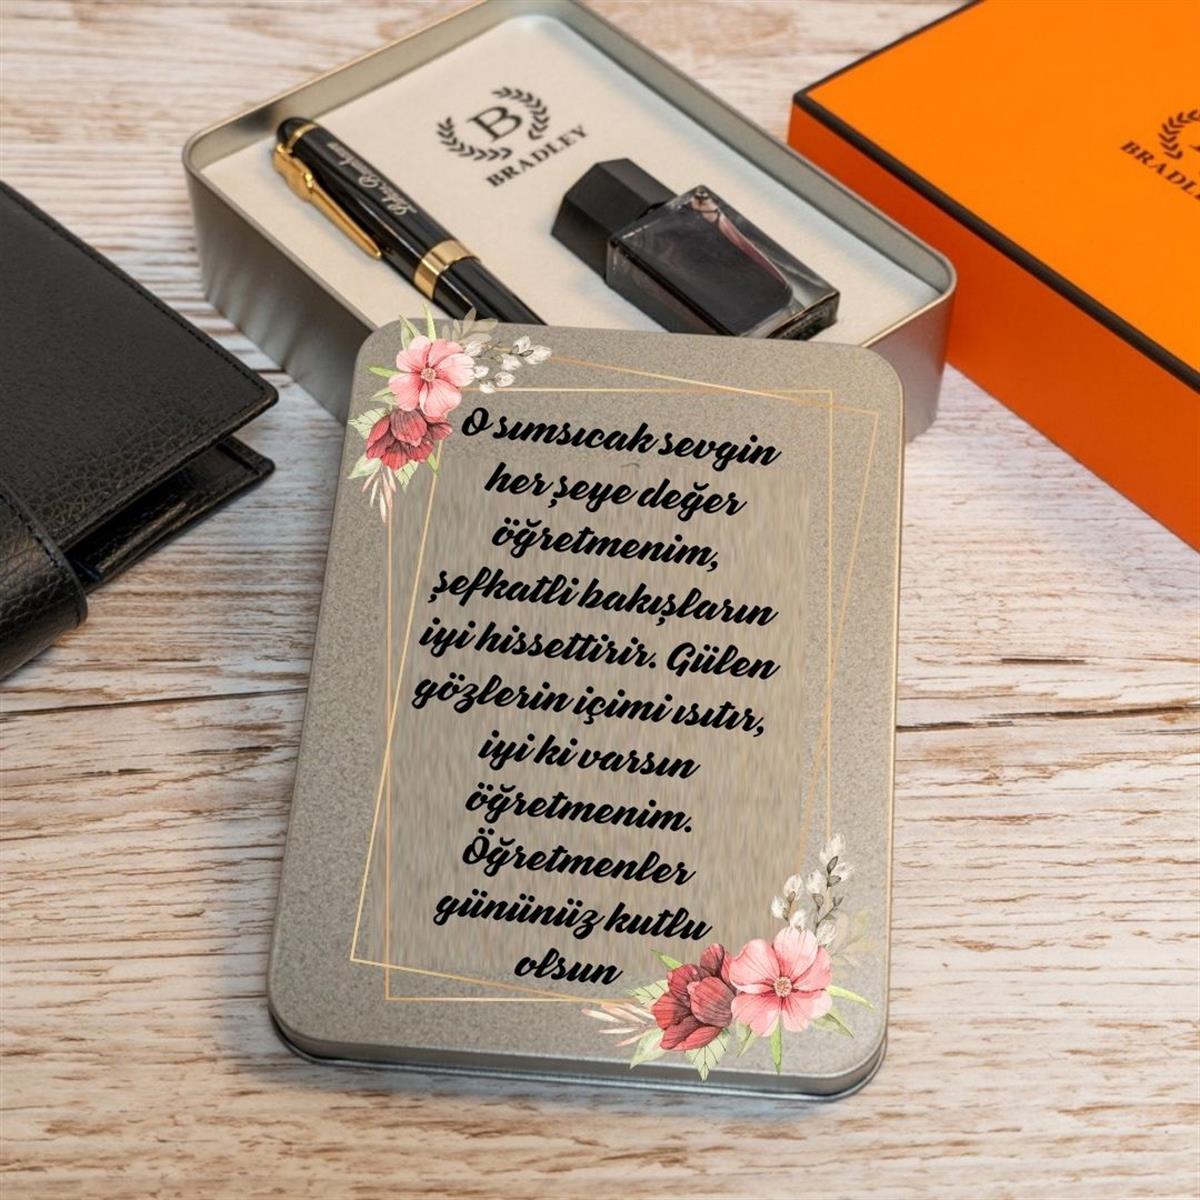 B
BRADLEY
BRADLEY
O sımsıcak sevgin
her şeye değer
öğretmenim,
şefkatli bakışların
iyi hissettirir. Gülen
gözlerin içimi ısıtır,
iyi ki varsın
öğretmenim.
Öğretmenler
gününüz kutlu
olsun